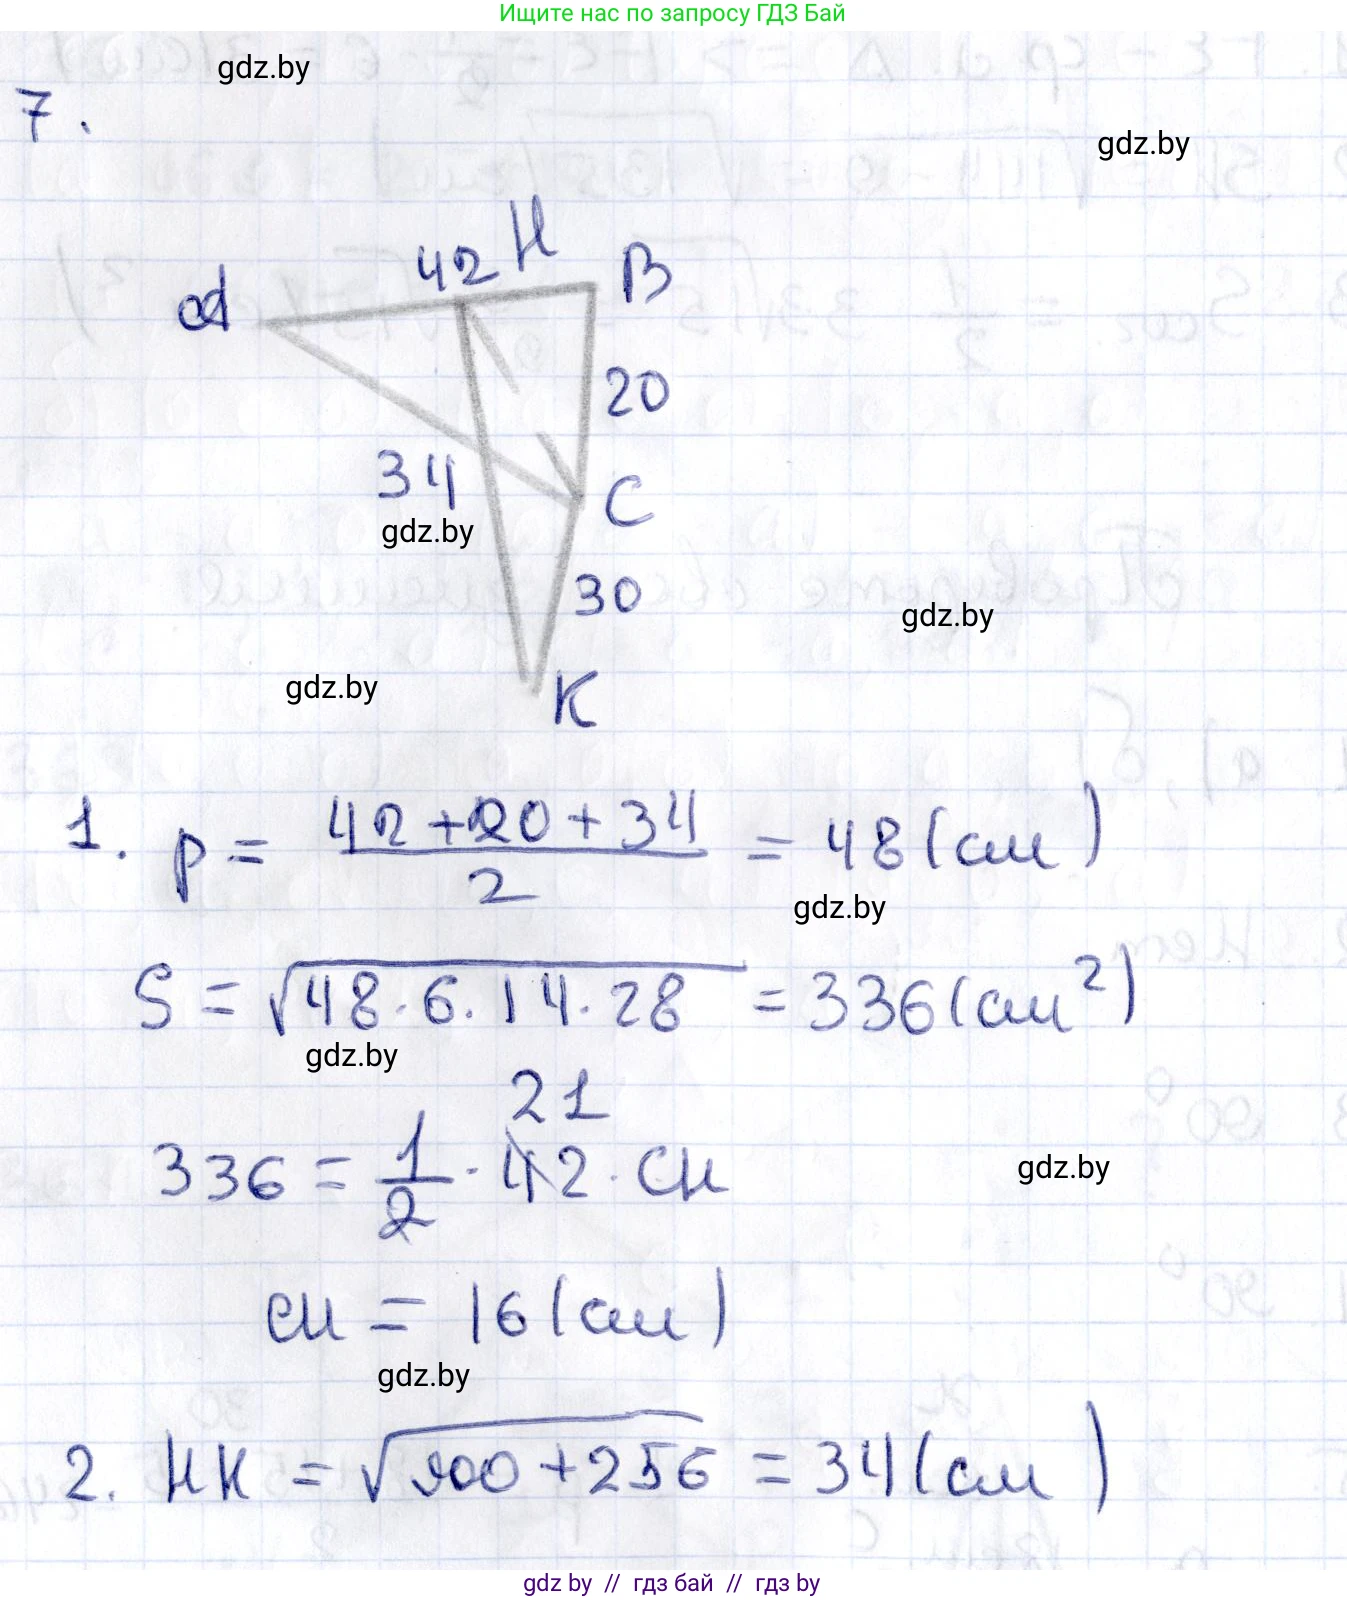 Ищите нас по запросу ГДЗ Бай
gdz.by
7.
gdz.by
42 H
A
B
20
34
C
gdz.by
30
gdz.by
gdz.by
K
1. p = 42 + 20 + 34 / 2 = 48 (см)
gdz.by
S = √48 · 6 · 14 · 28 = 336 (см²)
gdz.by
21
336 = 1/2 · 42 · CH
gdz.by
CH = 16 (см)
gdz.by
2. HK = √900 + 256 = 34 (см)
gdz by // гдз бай // гдз by